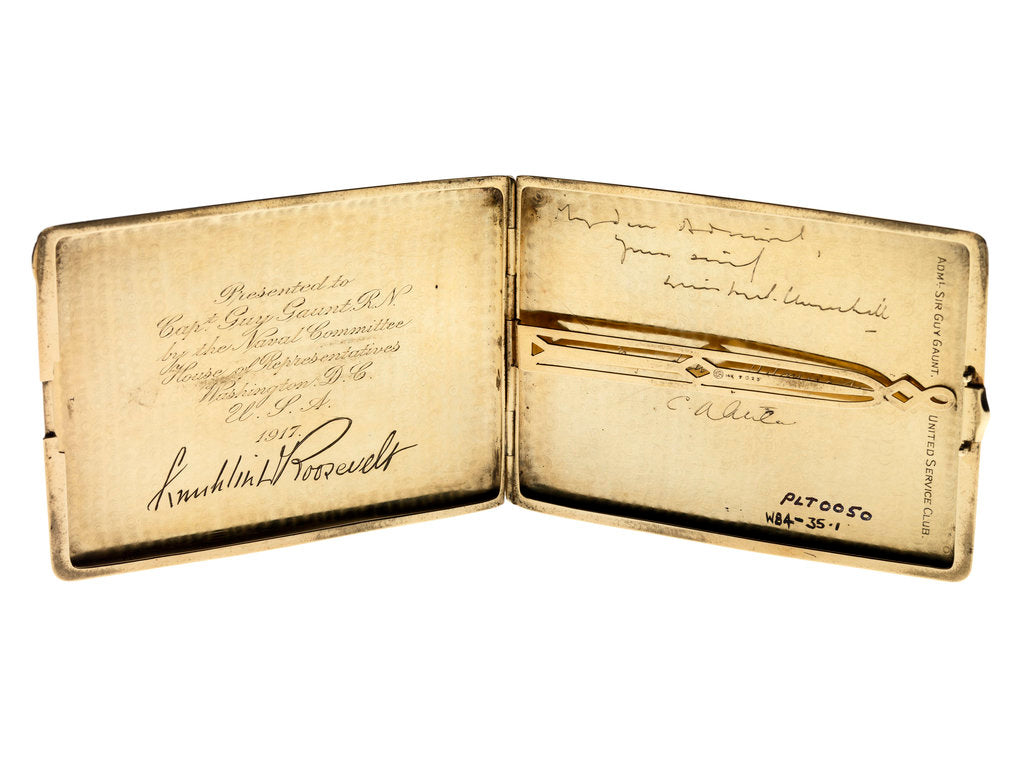 Presented to
Capt. Guy Gaunt. R.N.
by the Naval Committee
House of Representatives
Washington. D.C.
U.S.A.
1917.
Franklin D Roosevelt
My dear Admiral,
Yours
Winston S. Churchill
ADML. SIR GUY GAUNT.
UNITED SERVICE CLUB.
PLT0050
WB4-35-1